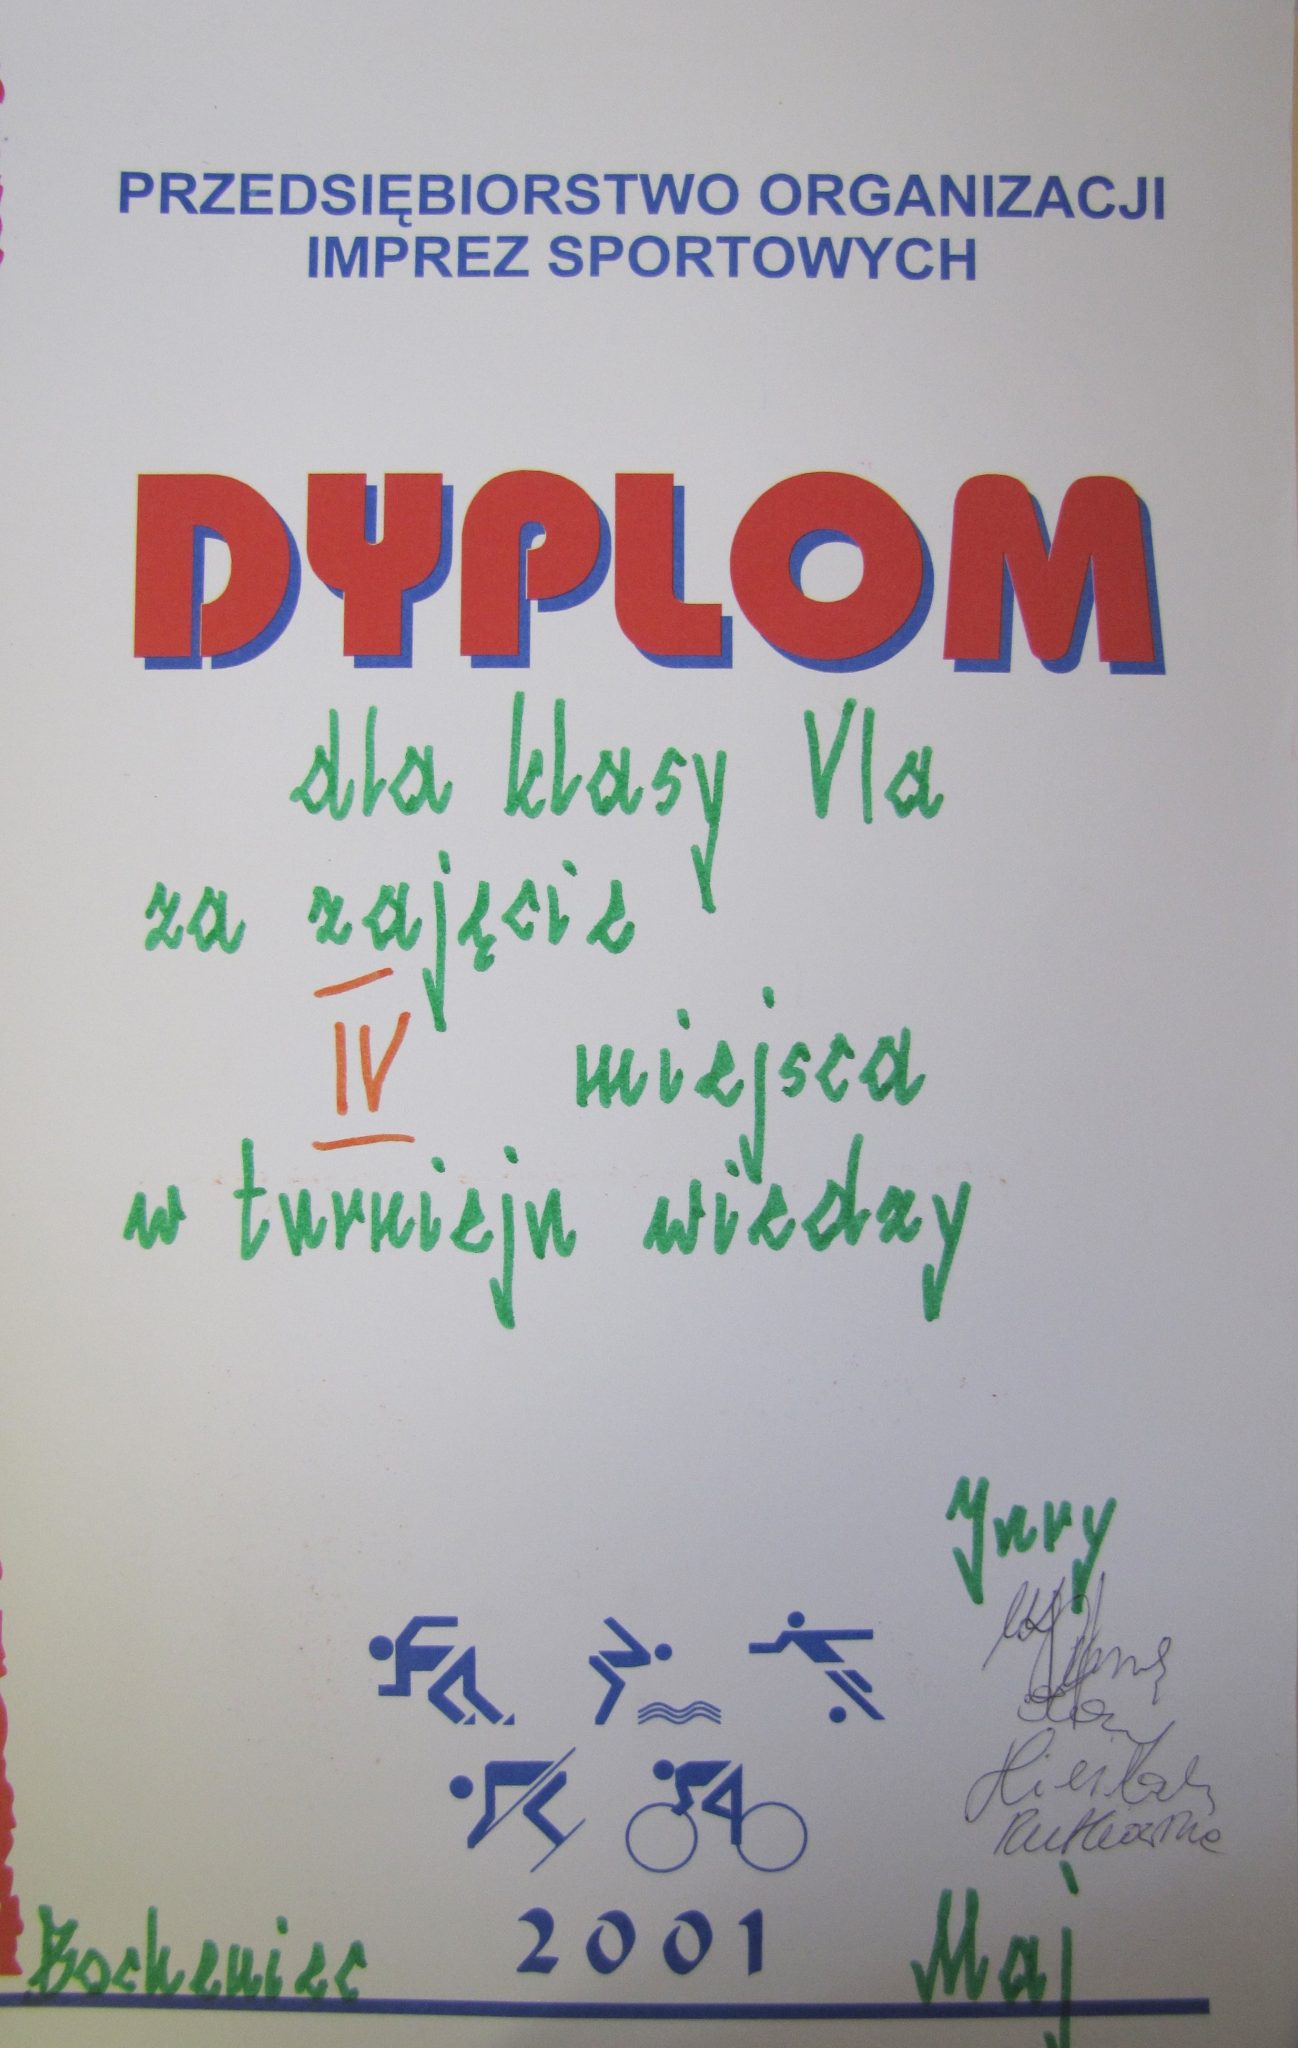 PRZEDSIĘBIORSTWO ORGANIZACJI
IMPREZ SPORTOWYCH
DYPLOM
dla klasy VIa
za zajęcie
IV miejsca
w turnieju wiedzy
Jury
Bocheniec 2001 Maj